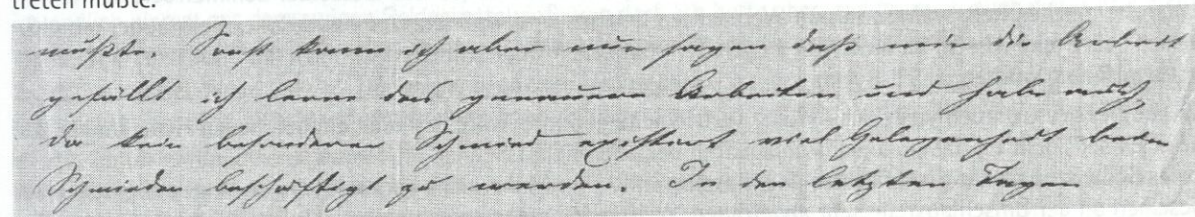 treten mußte.
mußte. Sonst kann ich aber nur sagen daß mir die Arbeit
gefällt ich lerne das genauere Arbeiten und habe auch,
da kein besonderer Schmied existiert viel Gelegenheit beim
Schmieden beschäftigt zu werden. In den letzten Tagen